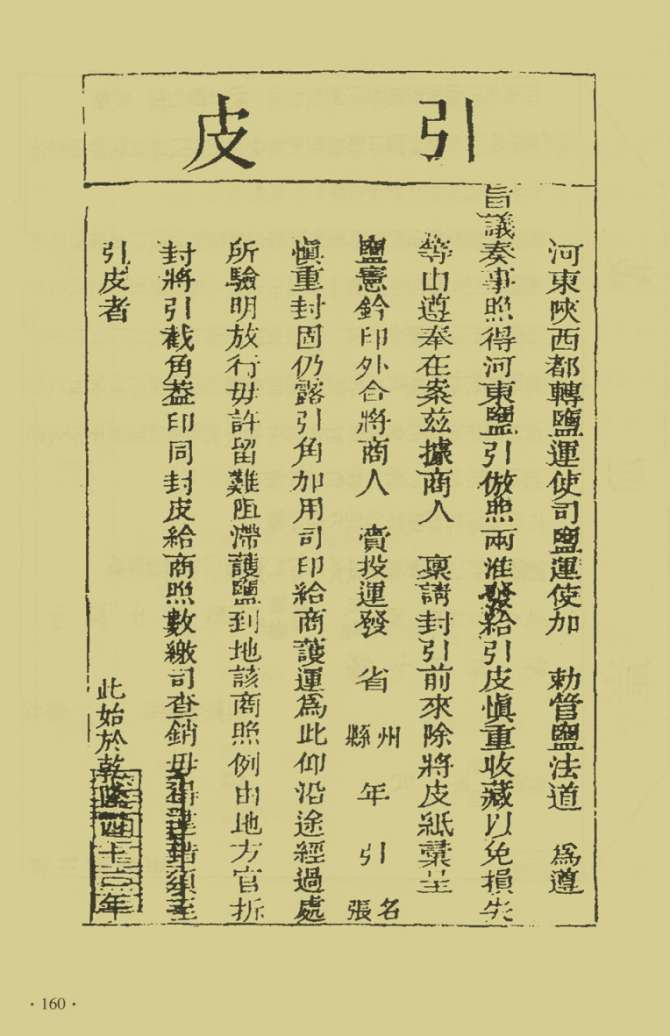 引皮
河東陜西都轉鹽運使司鹽運使加 勅管鹽法道 爲遵
旨議奏事照得河東鹽引倣照兩淮發給引皮愼重收藏以免損失
等由遵奉在案茲據商人 稟請封引前來除將皮紙彙呈
鹽憲鈐印外合將商人 賫投運發 省 州縣 年 引 名張
愼重封固仍露引角加用司印給商護運爲此仰沿途經過處
所驗明放行毋許留難阻滯護鹽到地該商照例由地方官拆
封將引截角葢印同封皮給商照數繳司查銷毋得違錯須至
引皮者
此始於乾隆四十三年
· 160 ·